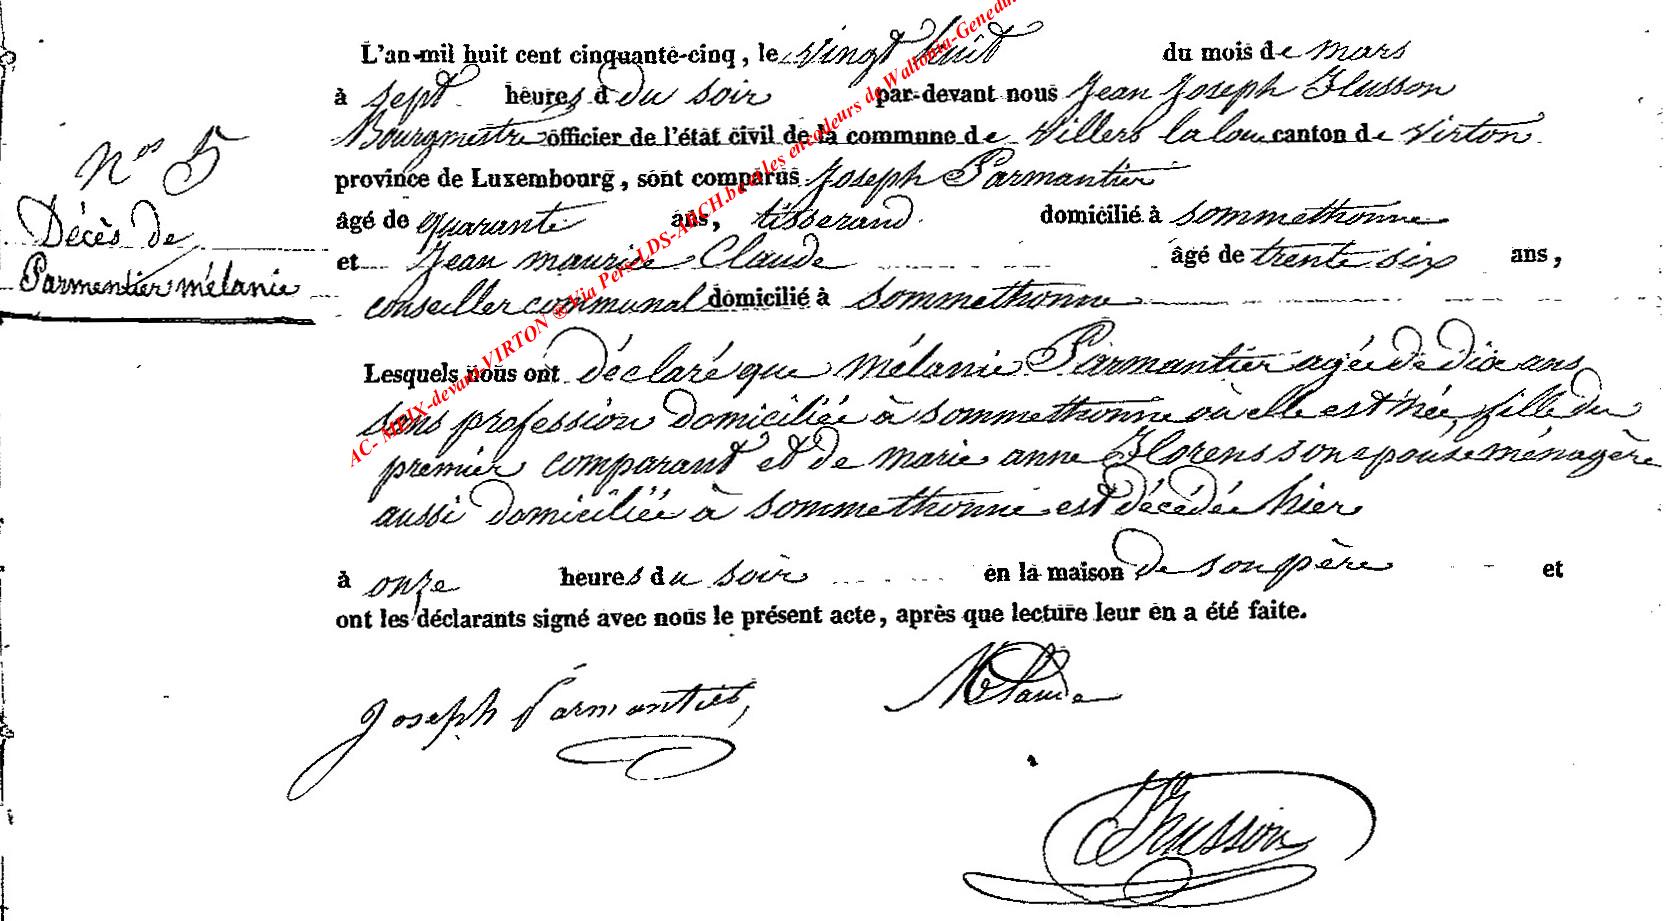 L'an mil huit cent cinquante-cinq, le vingt huit du mois de mars
à sept heures d du soir par-devant nous Jean Joseph Husson
Bourgmestre officier de l'état civil de la commune de Villers la loue canton de Virton
province de Luxembourg, sont comparus Joseph Parmantier
âgé de quarante ans, tisserand domicilié à Sommethonne
et Jean maurice Claude âgé de trente six ans,
conseiller communal domicilié à Sommethonne
Nos 5
Décès de
Parmentier mélanie
Lesquels nous ont déclaré que mélanie Parmantier agée de dix ans
sans profession domiciliée à Sommethonne où elle est née, fille du
premier comparant et de marie anne Florens son epouse ménagère
aussi domiciliée à Sommethonne est décédée hier
à onze heures du soir en la maison de son père et
ont les déclarants signé avec nous le présent acte, après que lecture leur en a été faite.
Joseph Parmantier
MClaude
Husson
AC- MEIX-devant-VIRTON ® Via Pers-LDS-ARCH.be et les encodeurs de Wallonia-Genedi